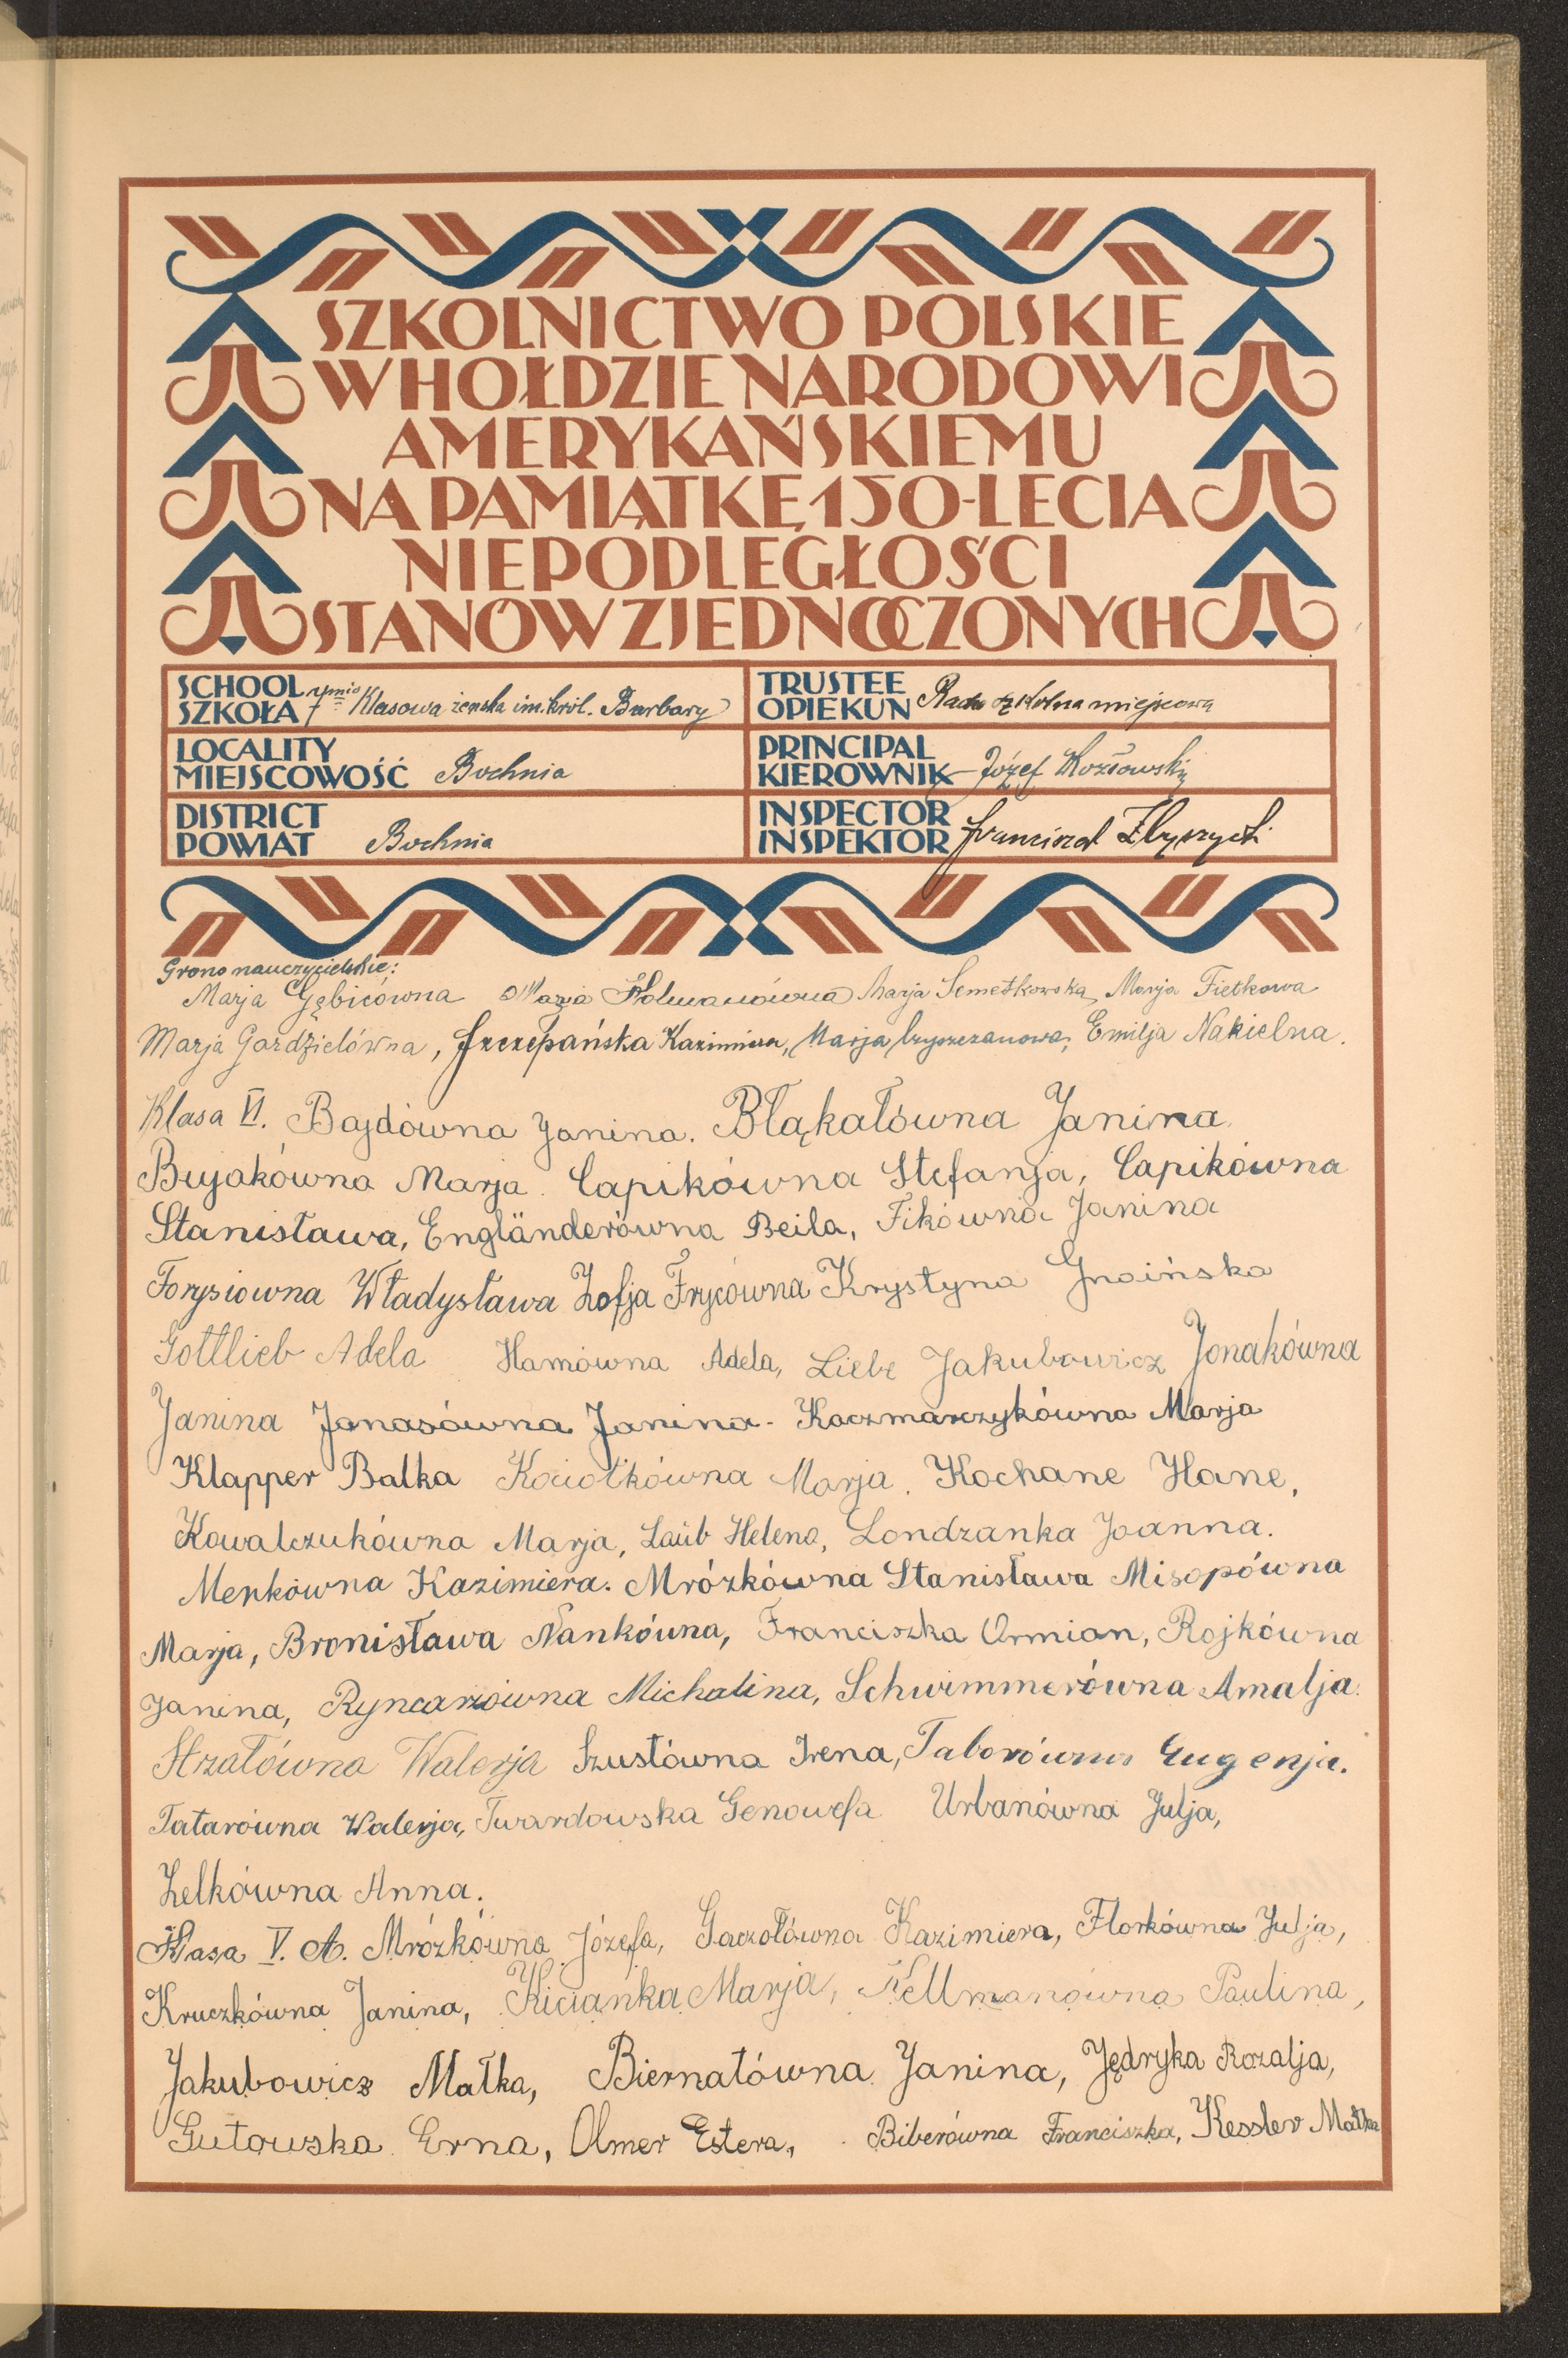 SZKOLNICTWO POLSKIE
W HOŁDZIE NARODOWI
AMERYKAŃSKIEMU
NA PAMIĄTKĘ 150-LECIA
NIEPODLEGŁOŚCI
STANÓW ZJEDNOCZONYCH
SCHOOL SZKOŁA 7mio Klasowa żeńska im. król. Barbary
TRUSTEE OPIEKUN Rada szkolna miejscowa
LOCALITY MIEJSCOWOŚĆ Bochnia
PRINCIPAL KIEROWNIK Józef Kozłowski
DISTRICT POWIAT Bochnia
INSPECTOR INSPEKTOR
Grono nauczycielskie:
Marja Gębicówna Marja Marja Semetkowska, Marja Fietkowa
Marja Gardzielówna, Szczepańska Kazimiera, Marja Emilja Nakielna.
Klasa VI. Bajdówna Janina. Błąkałówna Janina
Bujakówna Marja. Capikówna Stefanja, Capikówna
Stanisława, Engländerówna Beila, Fikówna Janina
Forysiowna Władysława Zofja Frycówna Krystyna Gnoińska
Gottlieb Adela Hamówna Adela, Liebe Jakubowicz Jonakówna
Janina Jonasówna Janina - Kaczmarczykówna Marja
Klapper Balka Kociołkówna Marja. Kochane Hane,
Kowalczukówna Marja, Laüb Helena, Londzanka Joanna.
Menkówna Kazimiera. Mrózkówna Stanisława Misopówna
Marja, Bronisława Nankówna, Franciszka Ormian, Rojkówna
Janina, Ryncarzówna Michalina, Schwimmerówna Amalja.
Strzałówna Walerja Szustówna Irena, Taborówna Eugenja.
Tatarówna Walerja, Twardowska Genowefa Urbanówna Julja,
Zelkówna Anna.
Klasa V. A. Mrózkówna Józefa, Gaczołówna Kazimiera, Florkówna Julja,
Kruczkówna Janina, Kicianka Marja, Kellmanówna Paulina,
Jakubowicz Małka, Biernatówna Janina, Jędryka Rozalja,
Gutowska Erna, Olmer Estera, Biberówna Franciszka, Kessler Małka